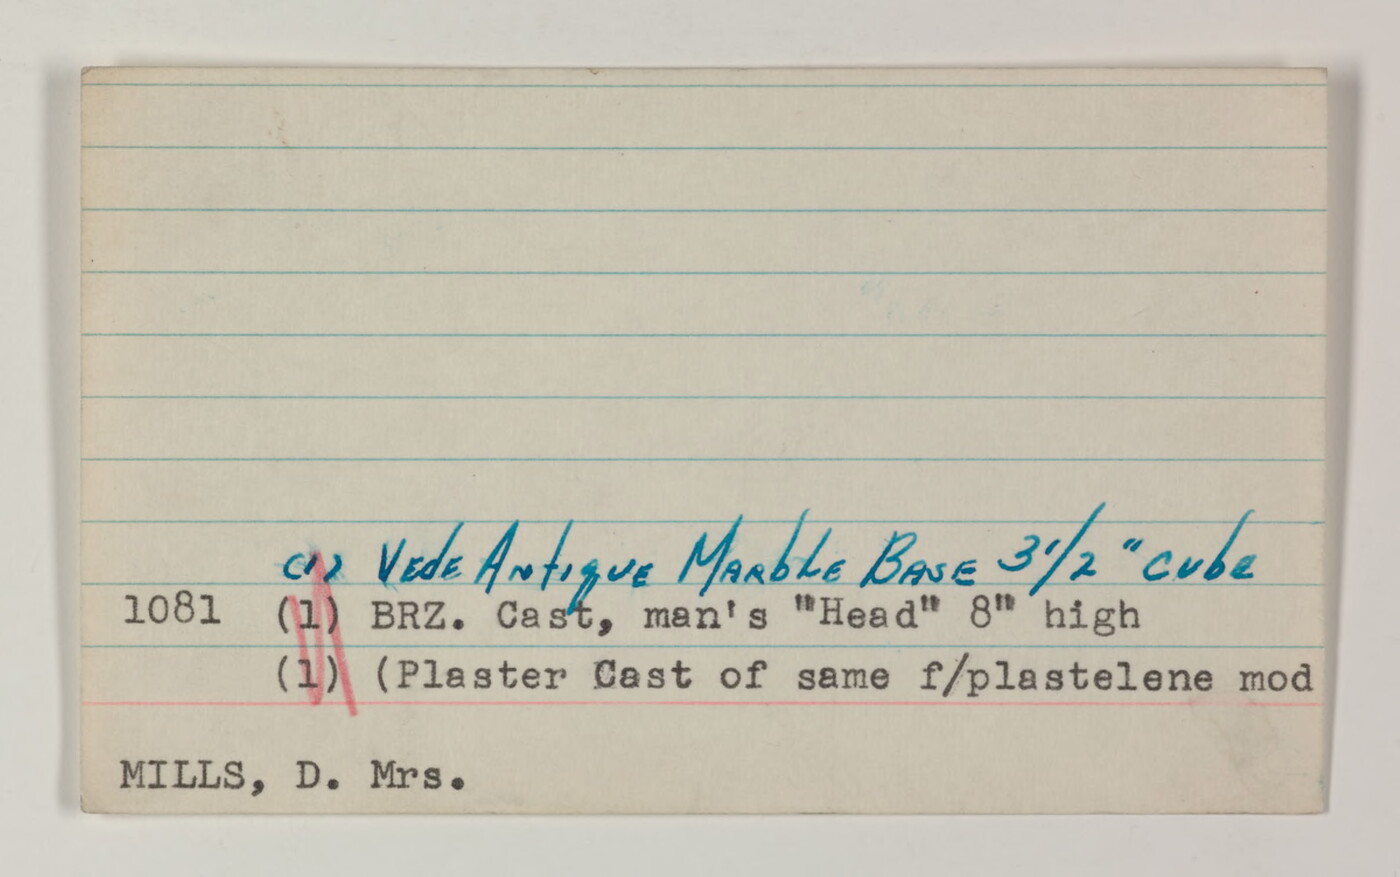 (1) Vede Antique Marble Base 3 1/2" cube
1081 (1) BRZ. Cast, man's "Head" 8" high
(1) (Plaster Cast of same f/plastelene mod
MILLS, D. Mrs.